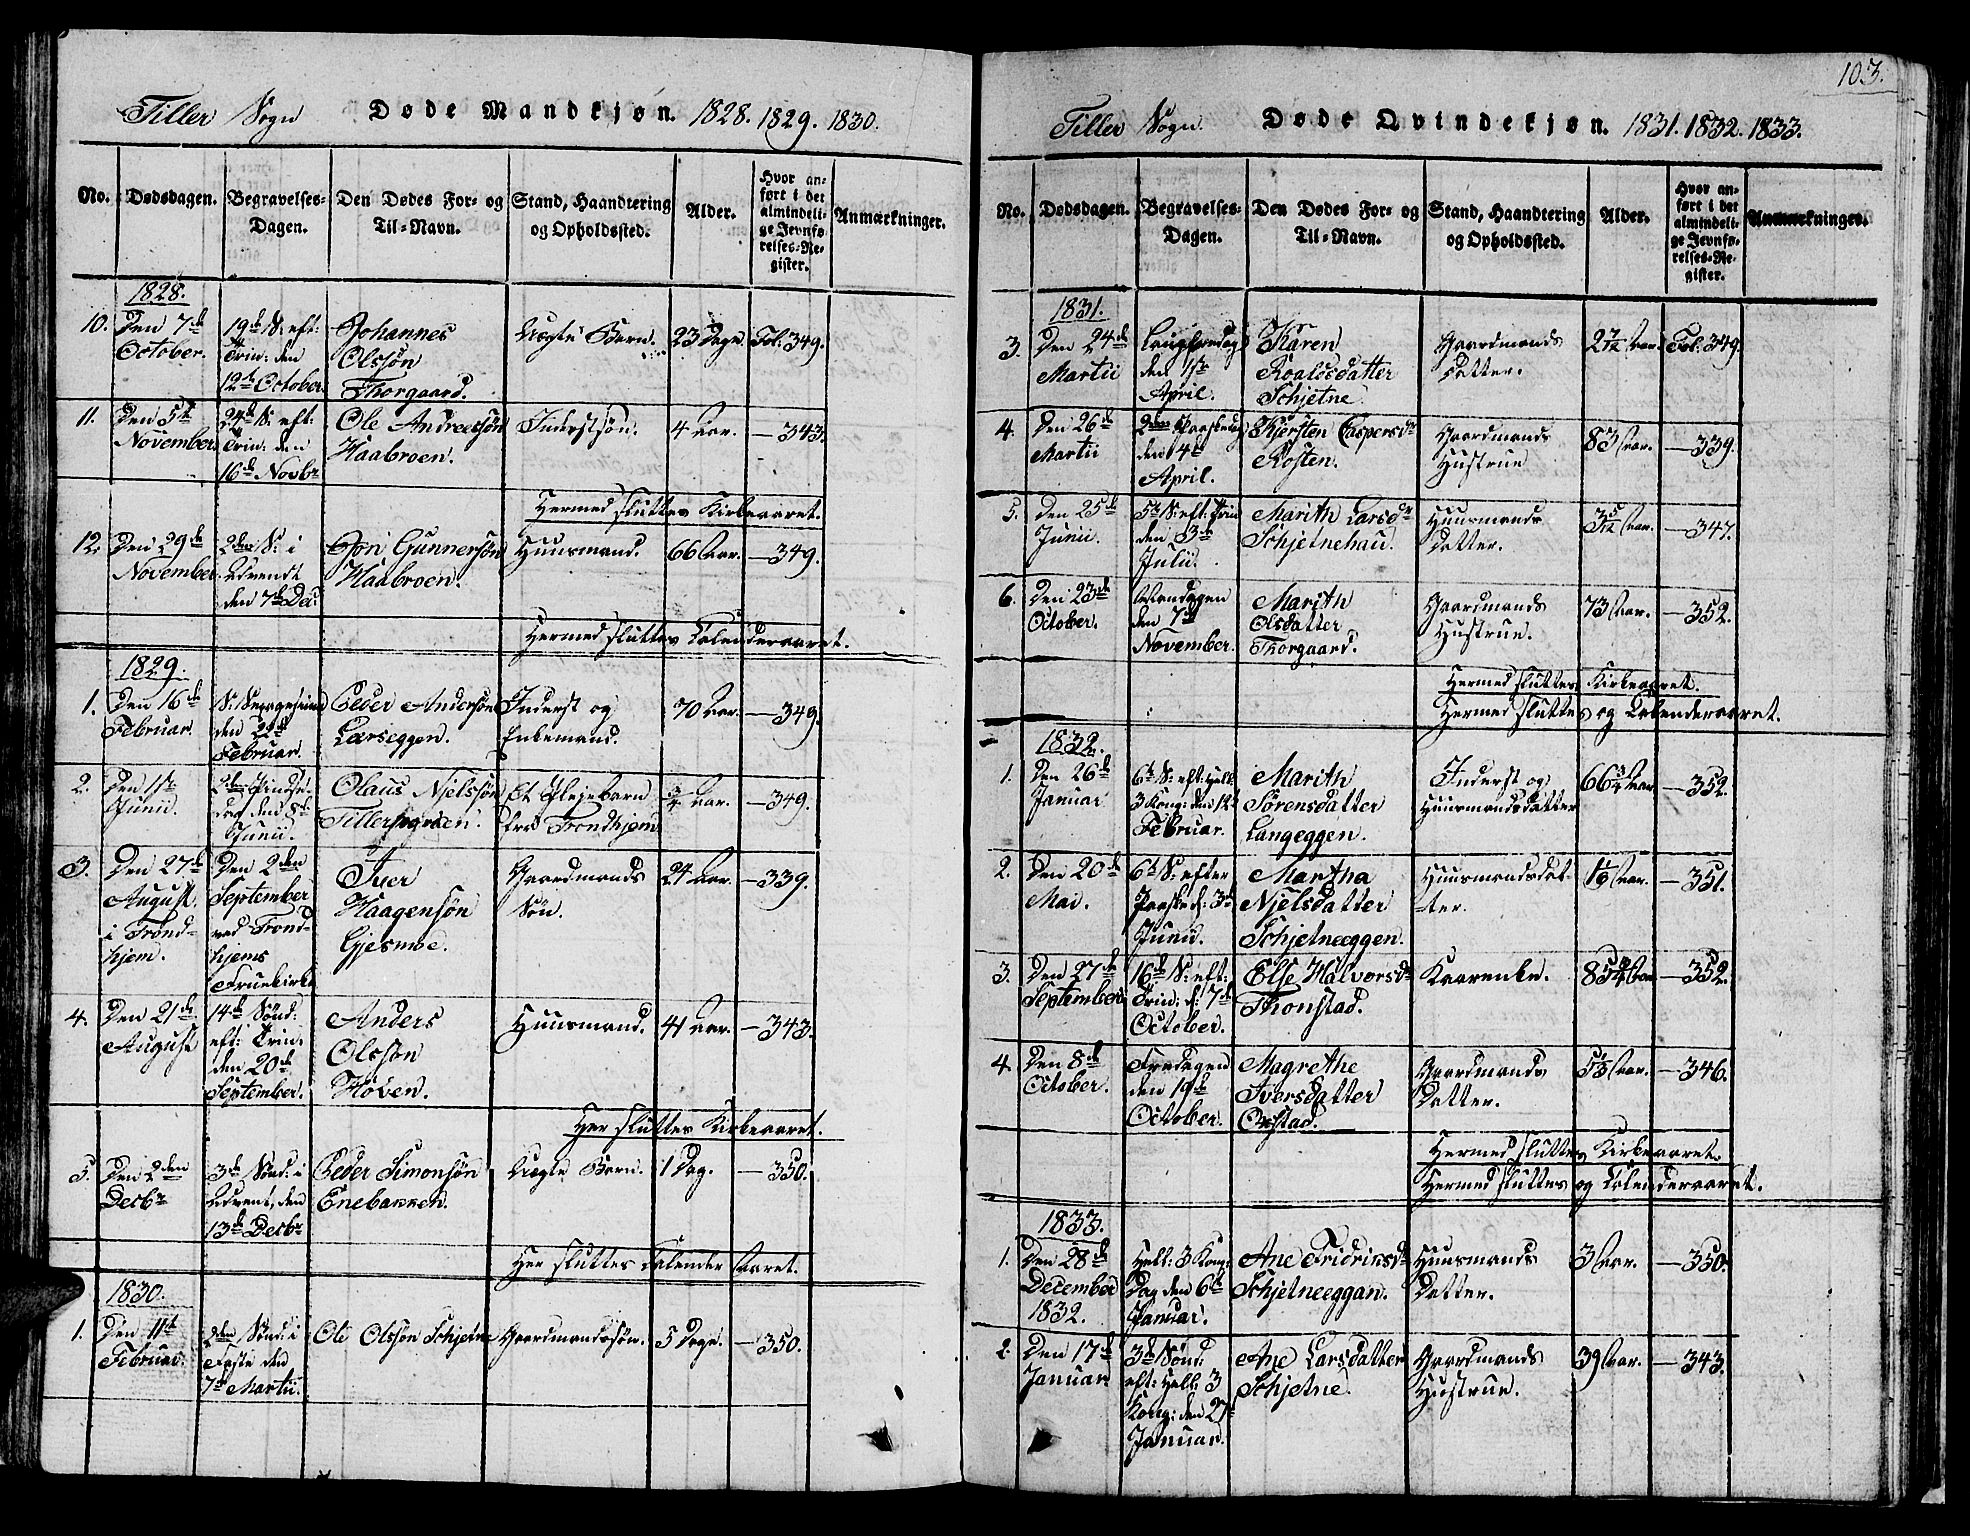 Tiller Sogn Døde Mandkjøn. 1828. 1829. 1830.
No. Dødsdagen. Begravelses-Dagen. Den Dødes For- og Til-Navn. Stand, Haandtering og Opholdssted. Alder. Hvor anført i det almindelige Jevnførelses-Register. Anmærkninger.
1828.
10. Den 7de October. 19de S: eft: Trin: den 12te October. Johannes Olssön Thorgaard. Uægte Barn. 23 Dage. Fol: 349.
11. Den 5te November. 24de S: eft: Trin: den 16de Novbr Ole Andreesön Haabroen. Inderstsön. 4 Aar. —343.
Hermed sluttes Kirkeaaret.
12. Den 29de November. 2den S: i Advendt den 7de Dec: Jon Gunnersön Haabroen. Huusmand. 66 Aar. —349.
Hermed sluttes Calenderaaret.
1829.
1. Den 16de Februar. S: den 22de Februar. Peder Andersön Læerseggen. Inderst og Enkemand. 70 Aar. —349.
2. Den 1ste Junii. 2den Pindsedag den 8de Junii. Olaus Njelssön Et Plejebarn fra Trondhjem ¾ Aar. —349.
3. Den 27de August i Trondhjem. Den 2den September ved Trondhjems Fruekirke Iver Haagensön Gjesmoe. Gaardmands Sön. 24 Aar. —339.
4. Den 21de August 14de Sönd: eft: Trin: den 20de September. Anders Olssön Hoven. Huusmand. 41 Aar. —343.
Her sluttes Kirkeaaret.
5. Den 2den Decbr 3de Sönd: i Advent, den 13de Decbr Peder Simonsön Enebakken. Uægte Barn. 1 Dag. —350.
Her sluttes Calender Aaret.
1830.
1. Den 11te Februar. 2den Sönd: i Faste den 7de Martii. Ole Olssön Schjetne Gaardmandssön. 5 Dage. —350.
103.
Tiller Sogn. Døde Qvindekjøn. 1831. 1832. 1833.
No. Dødsdagen. Begravelses-Dagen. Den Dødes For- og Til-Navn. Stand, Haandtering og Opholdssted. Alder. Hvor anført i det almindelige Jevnførelses-Register. Anmærkninger.
1831.
3. Den 24de Martii Langfredag den 1ste April. Karen Roaldsdatter Schjetne. Gaardmands Datter. 2 7/12 Aar. Fol: 349.
4. Den 26de Martii 2den Paaskedag den 4de April. Kjersten Caspersdr Rosten. Gaardmands Hustrue 83 Aar. —339.
5. Den 25de Junii. 5te S: eft: Trin den 3de Julii. Marith Larsdr Schjetnehau. Huusmands Datter. 3 5/12 Aar. —347.
6. Den 23de October. Mandagen den 7de November. Marith Olsdatter Thorgaard. Gaardmands Hustrue. 73 Aar. —352.
Hermed sluttes Kirkeaaret.
Hermed sluttes og Calenderaaret.
1832.
1. Den 26de Januar 6te S: eft: Hell: 3 Kong: den 12te Februar. Marith Sörensdatter Langeggen. Inderst og Huusmandsdatter 66 ¾ Aar —352.
2. Den 20de Mai. 6te S: efter Paaske d: 3de Junii. Martha Njelsdatter Schjetneeggen. Huusmandsdatter. Aar. —351.
3. Den 27de September 16de S: eft: Trin: d: 7de October. Else Halvorsdr Thonstad. Kaarenke. Aar —352.
4. Den 8de October. Fredagen den 19de October. Magrethe Iversdatter Orstad. Gaardmands Datter. Aar. —346.
Hermed sluttes Kirkeaaret.
Hermed sluttes og Calenderaaret.
1833.
1. Den 28de December 1832. Hell: 3 Kong: Dag den 6te Januar. Ane Fridriksdr Schjetneeggan. Huusmands Datter. 3 Aar. —350.
2. Den 17de Januar 3de Sönd: eft: Hell: 3 Kong: den 27de Januar. Ane Larsdatter Schjetne. Gaardmands Hustrue. 39 Aar. —343.